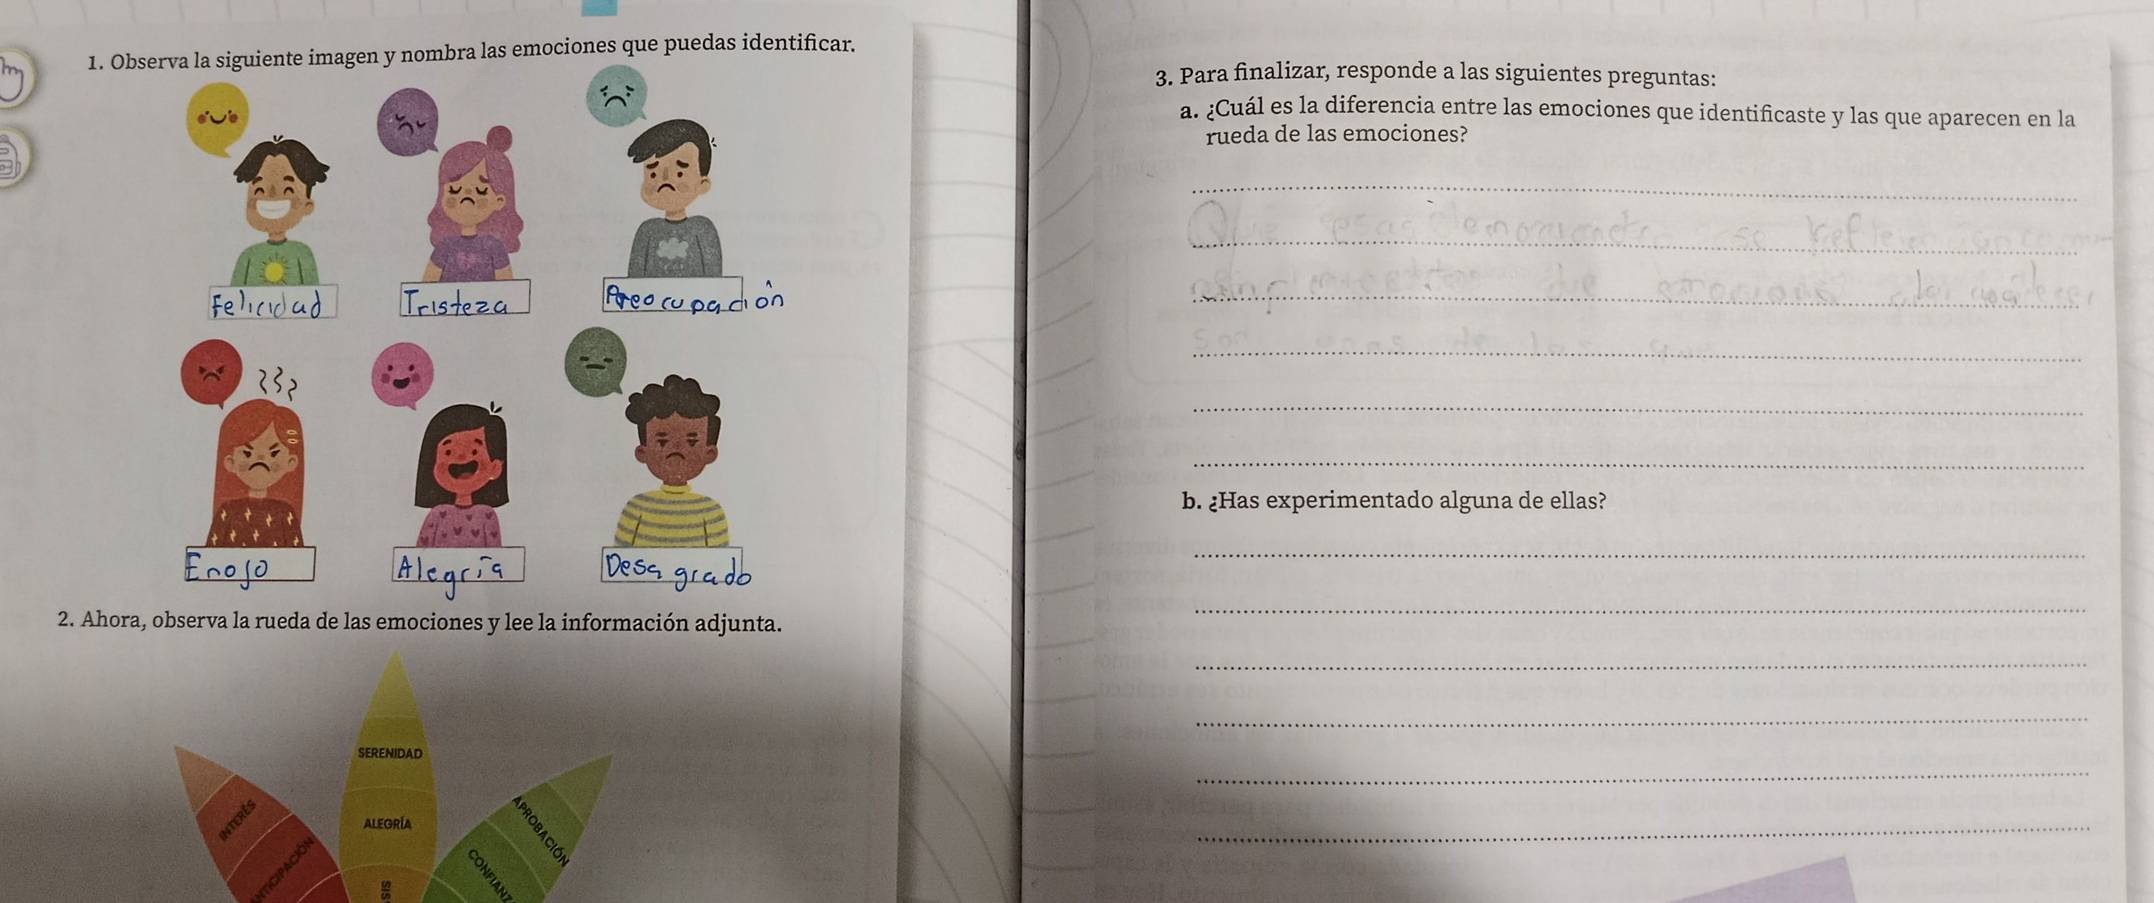 1. Observa la siguiente imagen y nombra las emociones que puedas identificar.
Felicidad
Tristeza
Preocupación
Enojo
Alegría
Desagrado
2. Ahora, observa la rueda de las emociones y lee la información adjunta.
SERENIDAD
INTERÉS
APROBACIÓN
ALEGRÍA
3. Para finalizar, responde a las siguientes preguntas:
a. ¿Cuál es la diferencia entre las emociones que identificaste y las que aparecen en la
rueda de las emociones?
Son unas de las que
b. ¿Has experimentado alguna de ellas?